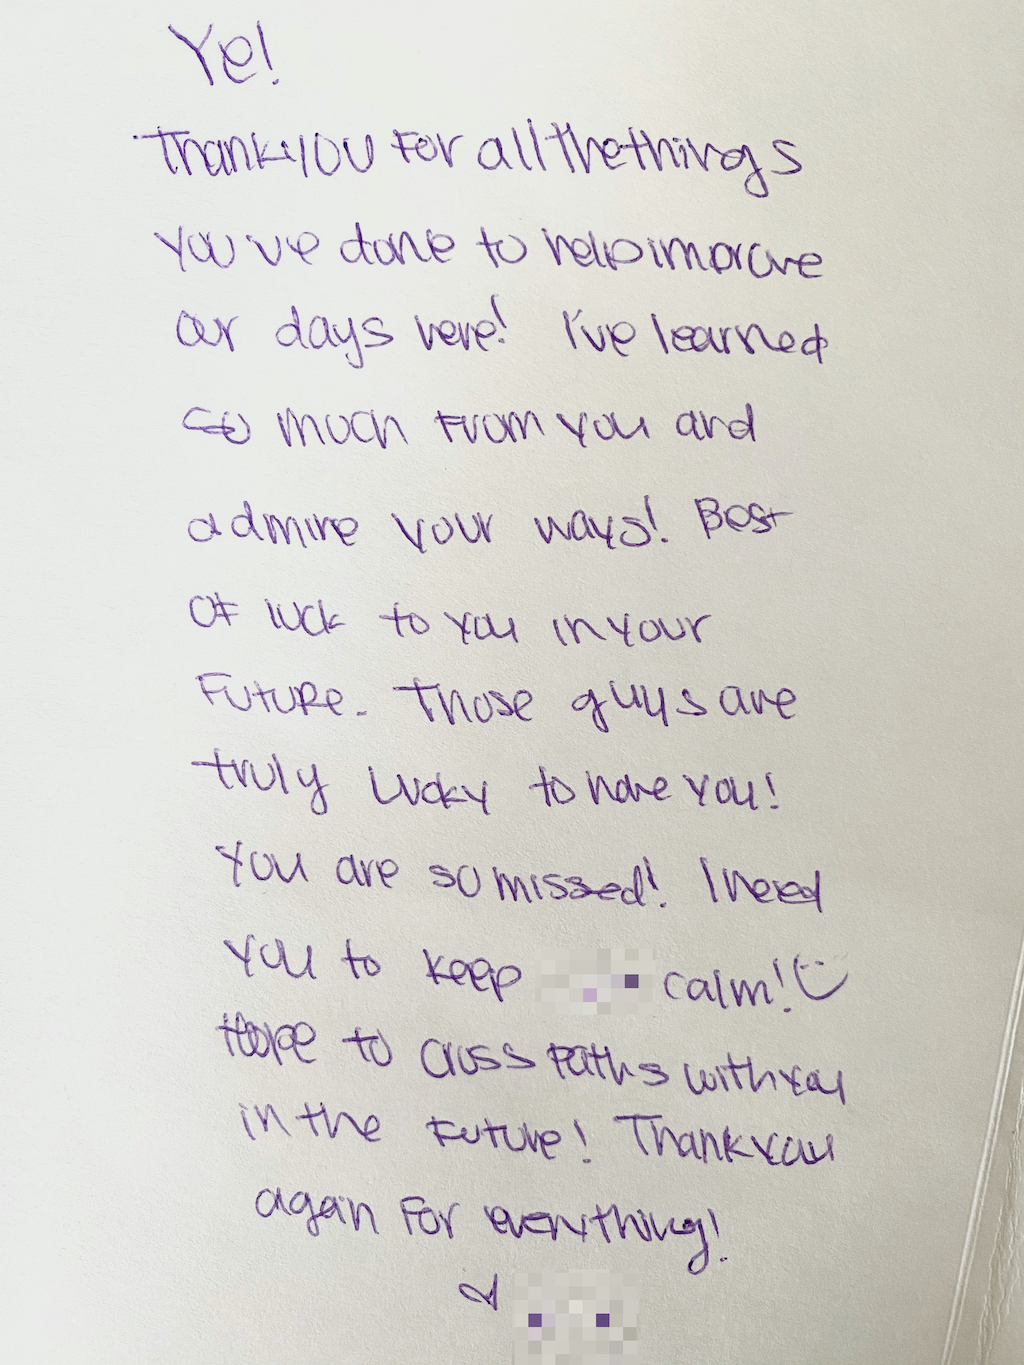 Ye!
Thank you for all the things
you've done to help improve
our days here! I've learned
so much from you and
admire your ways! Best
of luck to you in your
future. Those guys are
truly lucky to have you!
You are so missed! I need
you to keep calm!
Hope to cross paths with you
in the future! Thank you
again for everything!